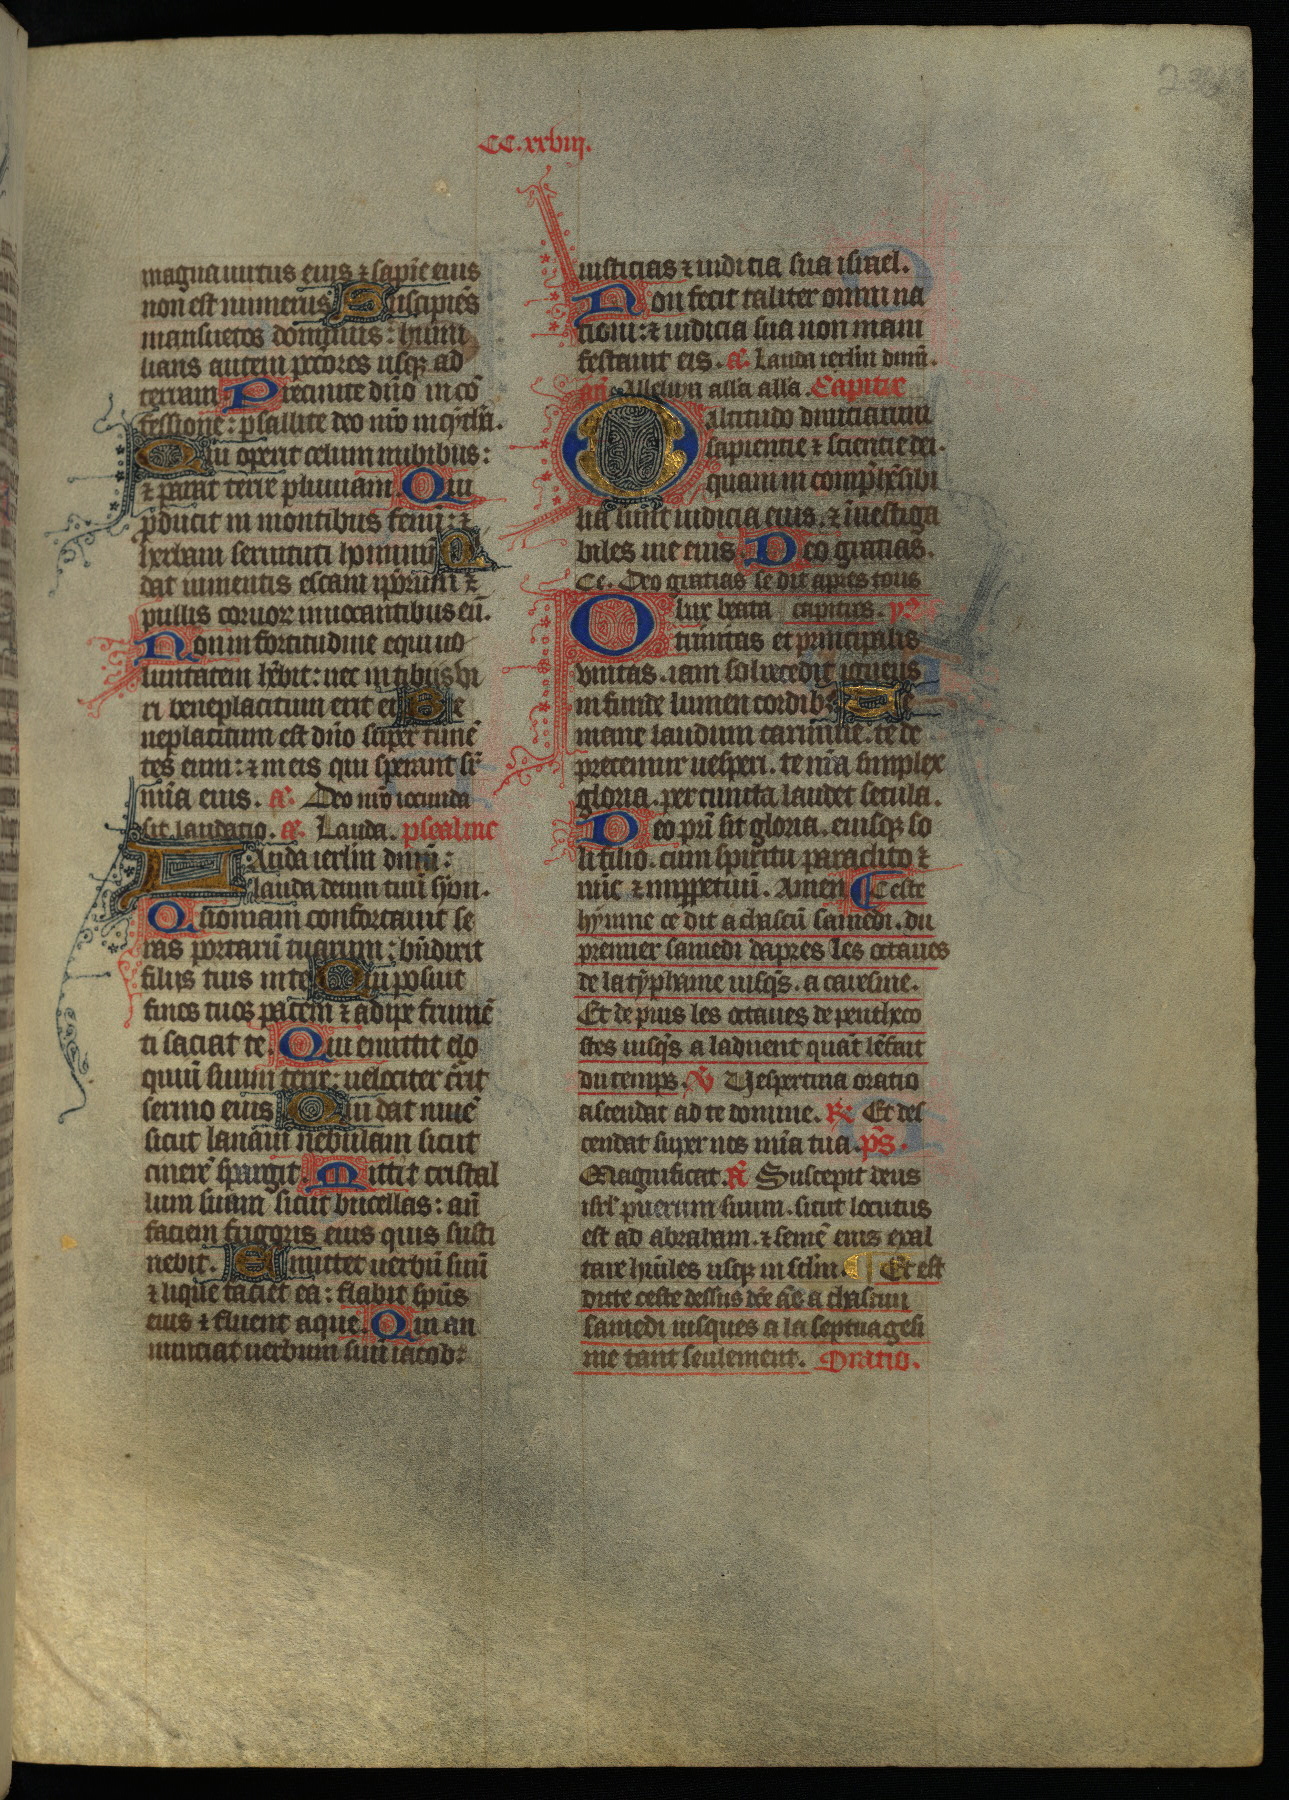 CC.xxviii.
magna uirtus eius ⁊ sapīe eius
non est numerus Suscipiēs
mansuetos dominus : humi
lians autem pccōres usqꝫ ad
terram Precinite dn̄o in cō
fessione : psallite deo nr̄o in cythā.
Qui operit celum nubibus :
⁊ parat terre pluuiam. Qui
producit in montibus fenū : ⁊
herbam seruituti hominū Q
dat iumentis escam ip̄orum ⁊
pullis coruoꝝ inuocantibus eū.
Non in fortitudine equi uo
luntatem hēbit : nec in tibijs vi
ri beneplacitum erit ei Be
neplacitum est dn̄o super timē
tes eum : ⁊ in eis qui sperant sr̄
mīa eius. a. Deo nr̄o iocunda
sit laudatio. a. Lauda. psealme
Lauda ierlm̄ dnm̄ :
lauda deum tuū syon.
Quoniam confortauit se
ras portarū tuarum : bn̄dixit
filijs tuis in te Qui posuit
fines tuos pacem ⁊ adipe frumē
ti saciat te. Qui emittit elo
quiū suum terre : uelociter cr̄rit
sermo eius Qui dat niuē
sicut lanam nebulam sicut
cinerē spargit. Mittit cristal
lum suam sicut bucellas : an̄
faciem frigoris eius quis susti
nebit. Emittet uerbū suū
⁊ liquefaciet ea : flabit sp̄us
eius ⁊ fluent aque. Qui an
nunciat uerbum suū iacob :
iusticias ⁊ iudicia sua israel.
Non fecit taliter omni na
tioni : ⁊ iudicia sua non mani
festauit eis. a. Lauda ierlm̄ dnm̄.
an̄. Alleluya all'a all'a. Capitre
O altitudo diuiciarum
sapientie ⁊ scientie dei.
quam incomp̄hēsibi
lia sunt iudicia eius. ⁊ īuestiga
biles uie eius. Deo gratias.
Ce. Deo gratias se dit apres tous
O lux beata capitres. y
trinitas et principalis
vnitas. iam sol recedit igneus
infunde lumen cordibꝰ Te
mane laudum carmine. te de
precemur uesperi. te nr̄a simplex
gloria. per cuncta laudet secula.
Deo pr̄i sit gloria. eiusqꝫ so
li filio. cum spiritu paraclito ⁊
nūc ⁊ imppetuū. Amen Ceste
hymne ce dit a chascū samedi. du
premier samedi dapres les octaues
de la typhame iusqs̄. a caresme.
Et depuis les octaues de pentheco
stes iusqs̄ a laduent quāt lē fait
du temps. V Uespertina oratio
ascendat ad te domine. R. Et des
cendat super nos mīa tua. ps̄.
Magnificat. a Suscepit deus
isrl' puerum suum. sicut locutus
est ad abraham. ⁊ semē eius exal
tare hūiles usqꝫ in sclm̄. Et est
ditte ceste dessus dc̄e āē a chascun
samedi iusques a la septuagesi
me tant seulement. Oratio.